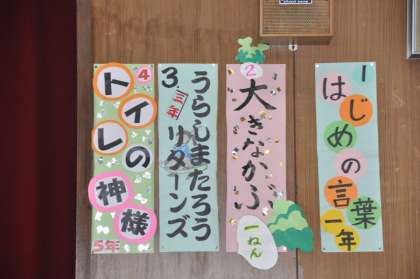 1
はじめの言葉
一年
2
大きなかぶ
一ねん
3
三年
うらしまたろう
リターンズ
4
トイレの
神様
5年